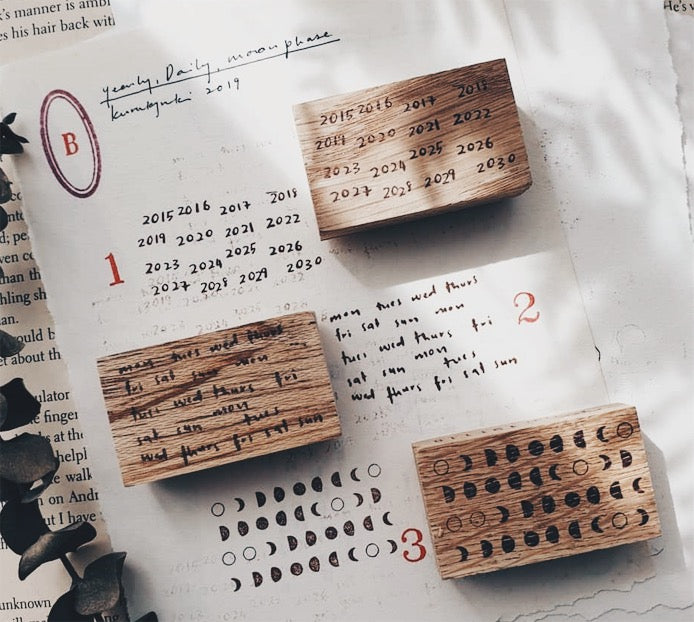 's manner is ambi
es his hair back wit
He's v
yearly, Daily, moon phase
kurukynki 2019
B
2015 2016 2017 2018
2019 2020 2021 2022
2023 2024 2025 2026
2027 2028 2029 2030
1
2015 2016 2017 2018
2019 2020 2021 2022
2023 2024 2025 2026
2027 2028 2029 2030
mon tues wed thurs
fri sat sun mon
tues wed thurs fri
sat sun mon tues
wed thurs fri sat sun
2
mon tues wed thurs
fri sat sun mon
tues wed thurs fri
sat sun mon tues
wed thurs fri sat sun
3
than th
hling sh
an.
ould b
et about th
ulator
e finger
s at the
help
e walk
n on Andr
ut I have
unknown